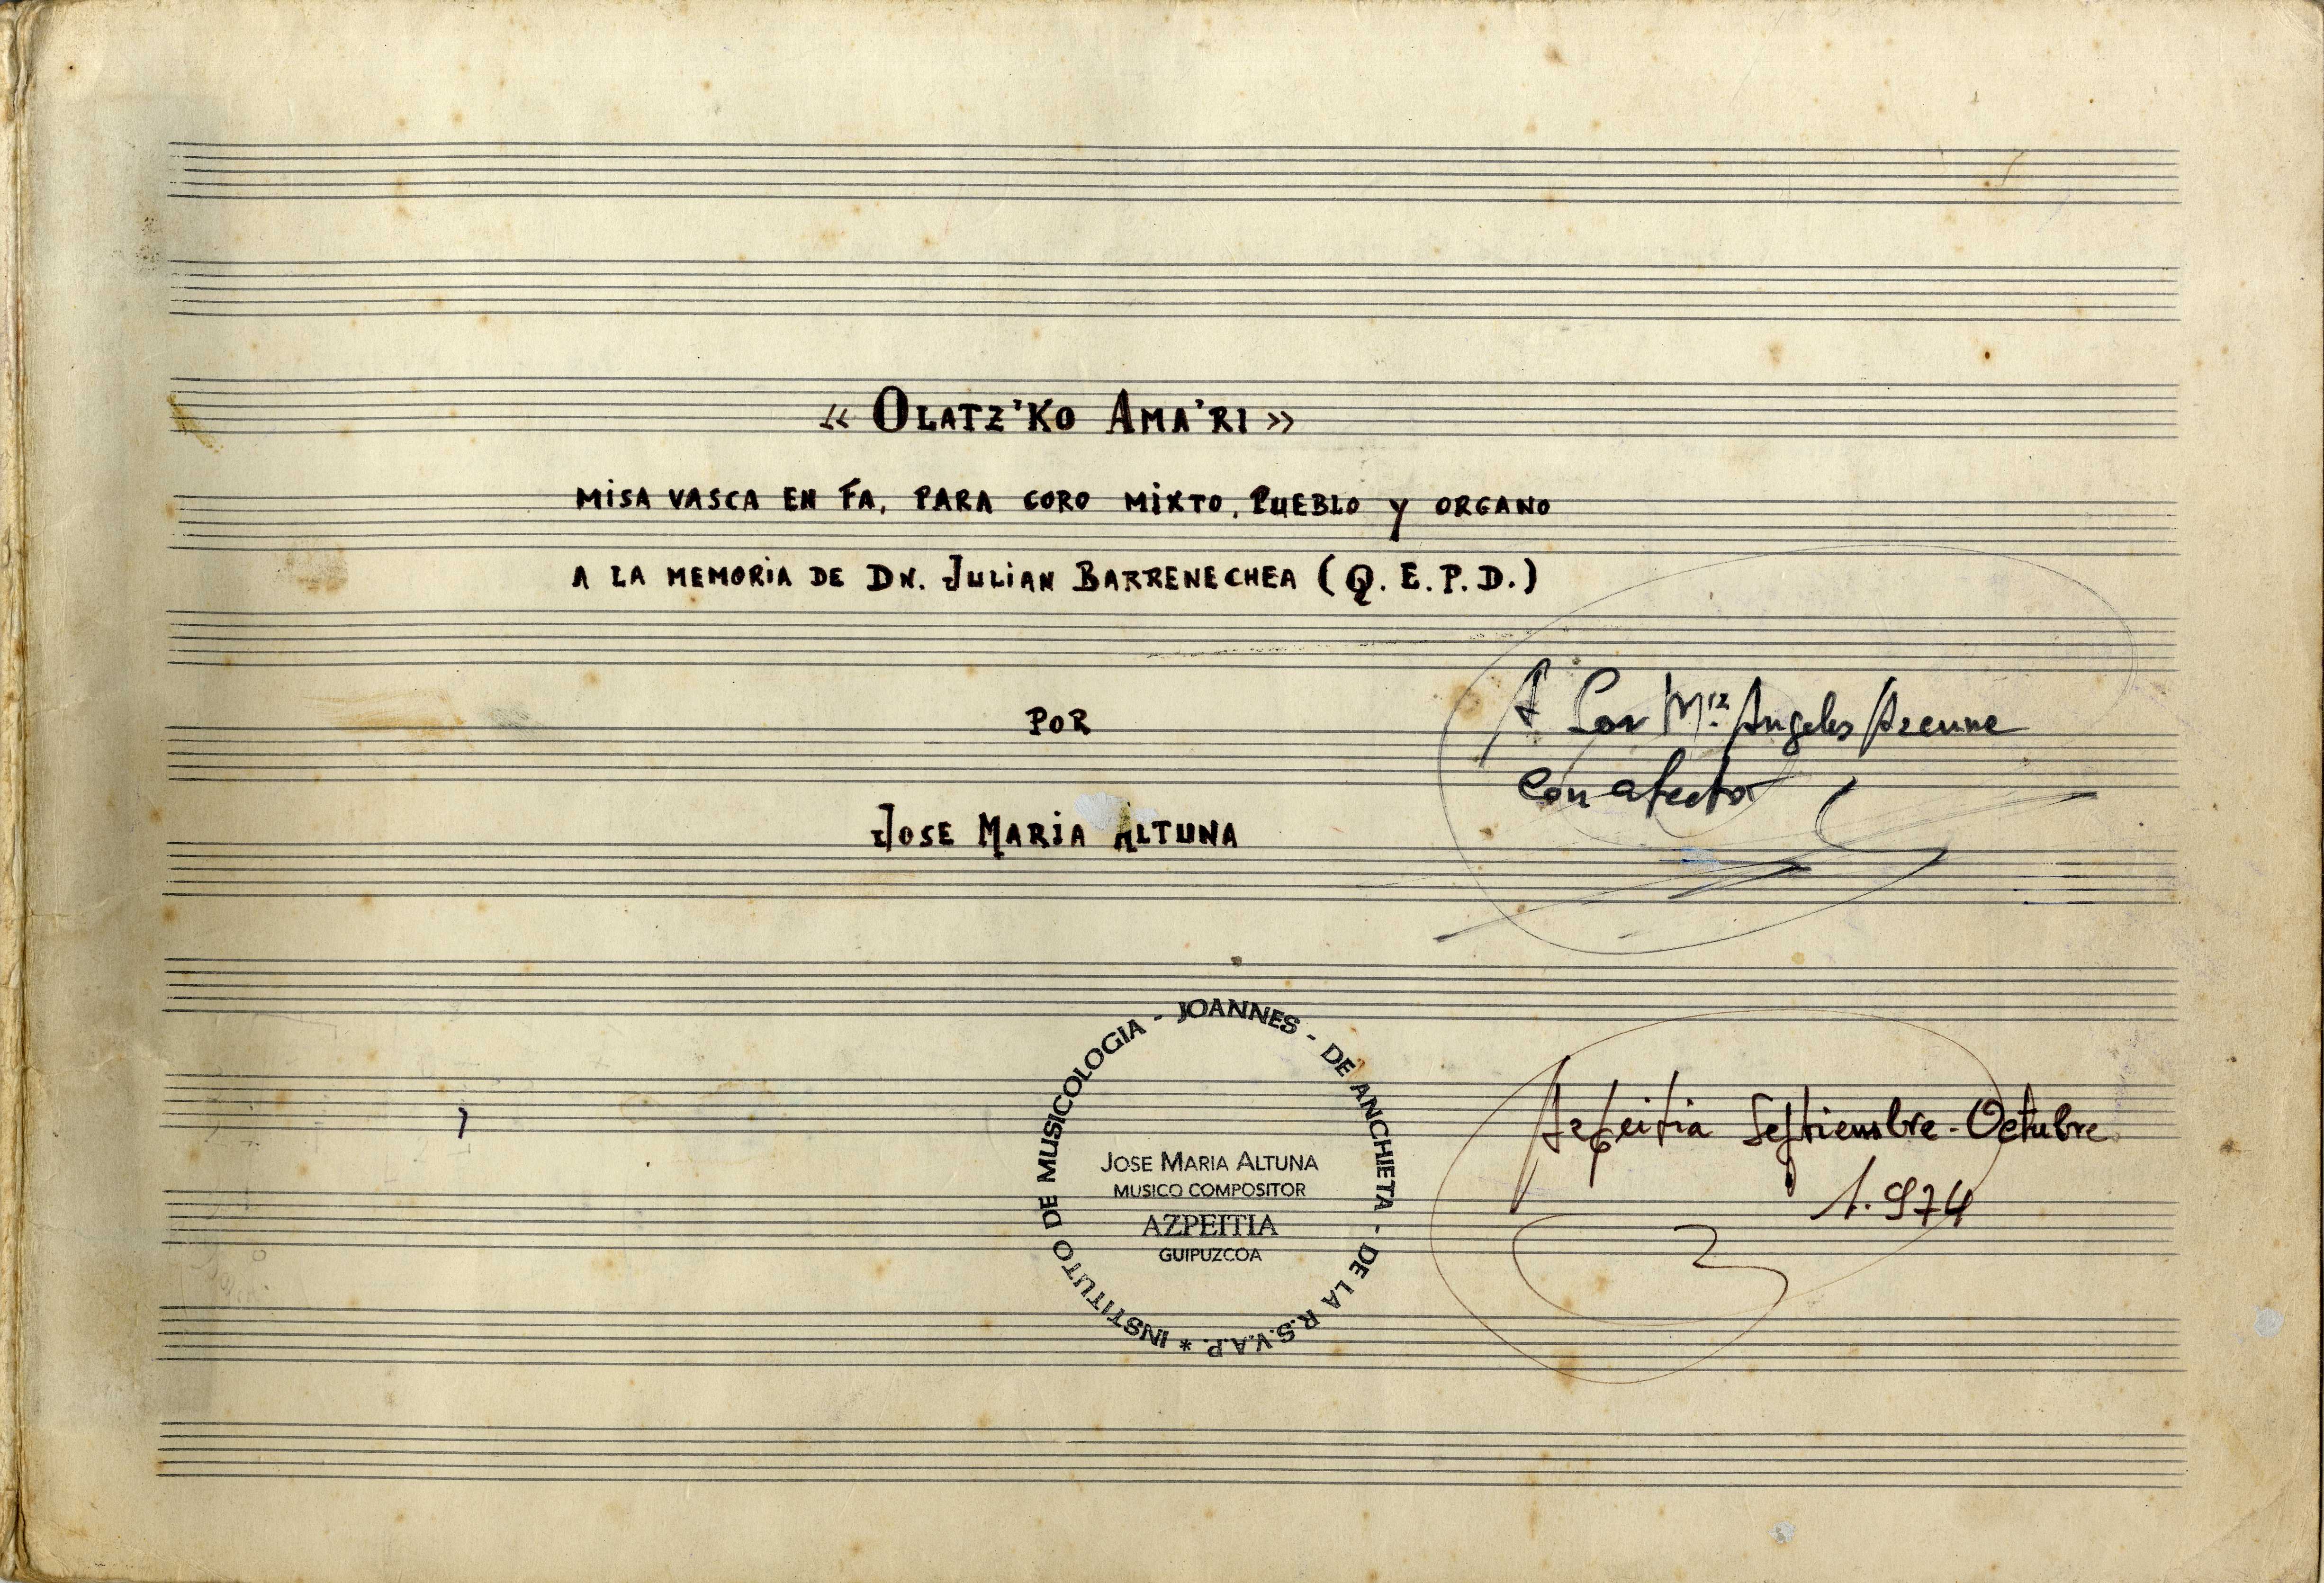 « OLATZ'KO AMA'RI »
MISA VASCA EN FA, PARA CORO MIXTO, PUEBLO Y ORGANO
A LA MEMORIA DE DN. JULIAN BARRENECHEA (Q. E. P. D.)
POR
JOSE MARIA ALTUNA
A Sor Mª Angeles
con afecto
INSTITUTO DE MUSICOLOGIA - JOANNES - DE ANCHIETA - DE LA R.S.V.A.P. *
JOSE MARIA ALTUNA
MUSICO COMPOSITOR
AZPEITIA
GUIPUZCOA
Azpeitia Septiembre-Octubre
1.974